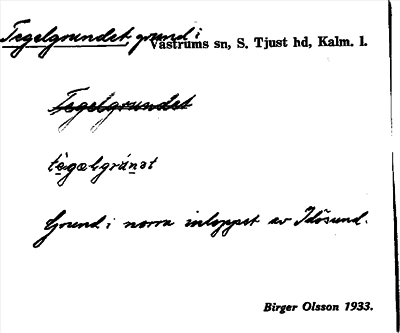 Tegelgrundet, grund i
Västrums sn, S. Tjust hd, Kalm. l.
Tegelgrundet
Grund i norra inloppet av Idösund.
Birger Olsson 1933.